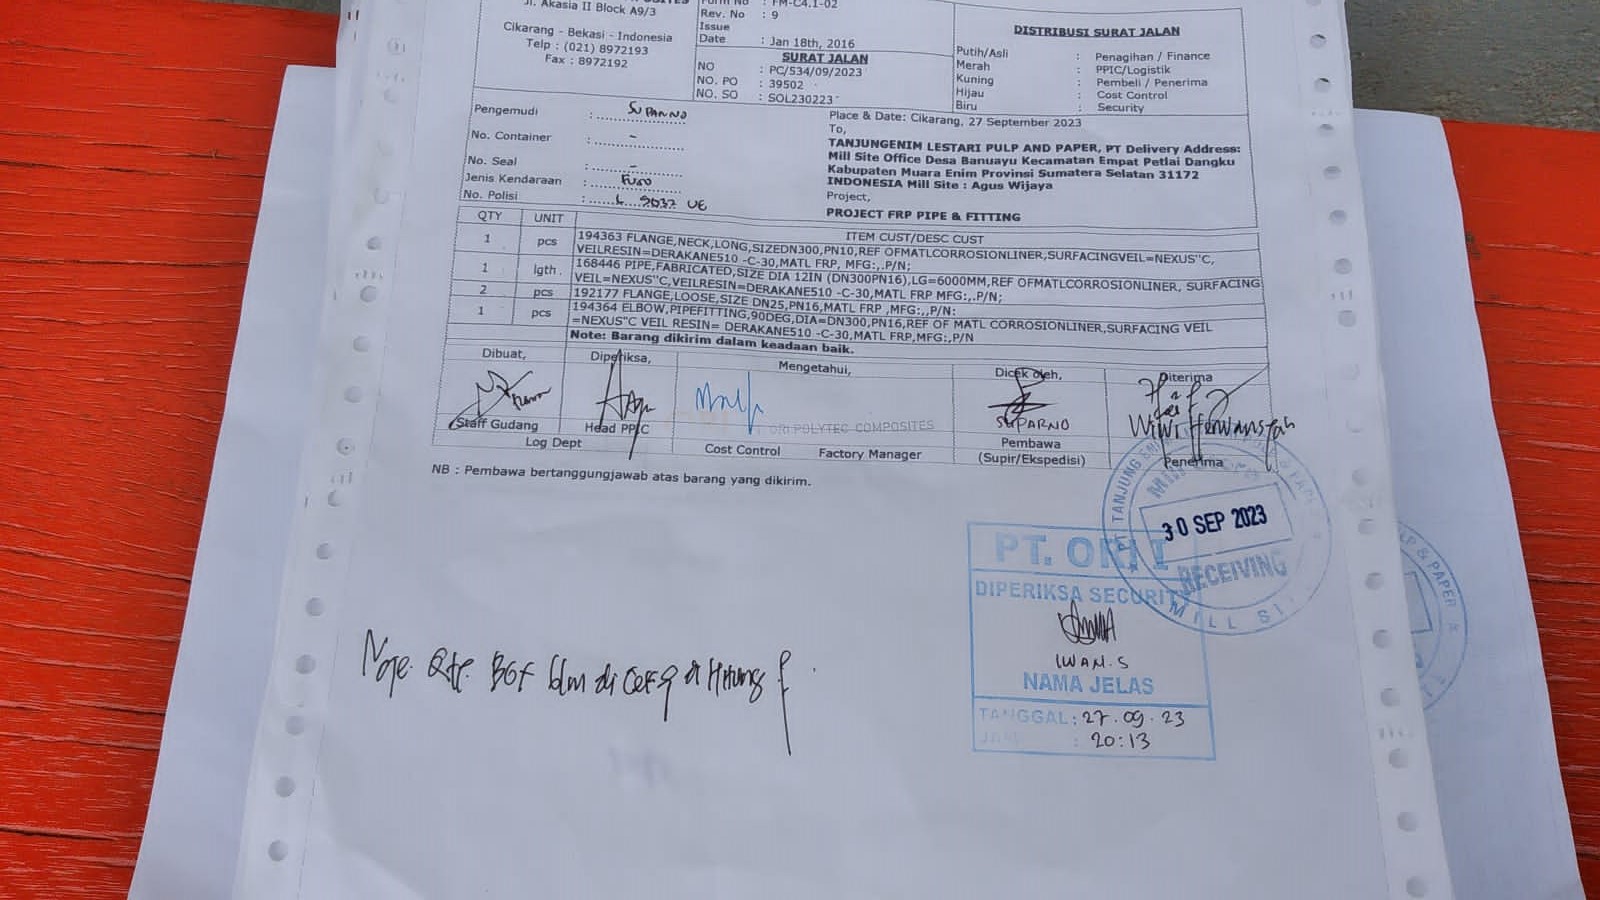 Jl. Akasia II Block A9/3
Cikarang - Bekasi - Indonesia
Telp : (021) 8972193
Fax : 8972192
Form No : FM-C4.1-02
Rev. No : 9
Issue
Date : Jan 18th, 2016
SURAT JALAN
NO : PC/534/09/2023
NO. PO : 39502
NO. SO : SOL230223
DISTRIBUSI SURAT JALAN
Putih/Asli : Penagihan / Finance
Merah : PPIC/Logistik
Kuning : Pembeli / Penerima
Hijau : Cost Control
Biru : Security
Pengemudi : SUPARNO
No. Container : -
No. Seal : -
Jenis Kendaraan : Fuso
No. Polisi : L 9037 UE
Place & Date: Cikarang, 27 September 2023
To,
TANJUNGENIM LESTARI PULP AND PAPER, PT Delivery Address:
Mill Site Office Desa Banuayu Kecamatan Empat Petlai Dangku
Kabupaten Muara Enim Provinsi Sumatera Selatan 31172
INDONESIA Mill Site : Agus Wijaya
Project,
PROJECT FRP PIPE & FITTING
QTY UNIT ITEM CUST/DESC CUST
1 pcs 194363 FLANGE,NECK,LONG,SIZEDN300,PN10,REF OFMATLCORROSIONLINER,SURFACINGVEIL=NEXUS"C,
VEILRESIN=DERAKANE510 -C-30,MATL FRP, MFG:,.P/N;
1 lgth 168446 PIPE,FABRICATED,SIZE DIA 12IN (DN300PN16),LG=6000MM,REF OFMATLCORROSIONLINER, SURFACING
VEIL=NEXUS"C,VEILRESIN=DERAKANE510 -C-30,MATL FRP MFG:,.P/N;
2 pcs 192177 FLANGE,LOOSE,SIZE DN25,PN16,MATL FRP ,MFG:,,P/N:
1 pcs 194364 ELBOW,PIPEFITTING,90DEG,DIA=DN300,PN16,REF OF MATL CORROSIONLINER,SURFACING VEIL
=NEXUS"C VEIL RESIN= DERAKANE510 -C-30,MATL FRP,MFG:,P/N
Note: Barang dikirim dalam keadaan baik.
Dibuat, Diperiksa, Mengetahui, Dicek oleh, Diterima
SUPARNO
Staff Gudang Head PPIC POLYTEC COMPOSITES
Log Dept Cost Control Factory Manager Pembawa
(Supir/Ekspedisi) Penerima
NB : Pembawa bertanggungjawab atas barang yang dikirim.
30 SEP 2023
RECEIVING
MILL
PT.
DIPERIKSA SECURITY
IWAN.S
NAMA JELAS
TANGGAL : 27.09.23
JAM : 20:13
blm di
PAPER